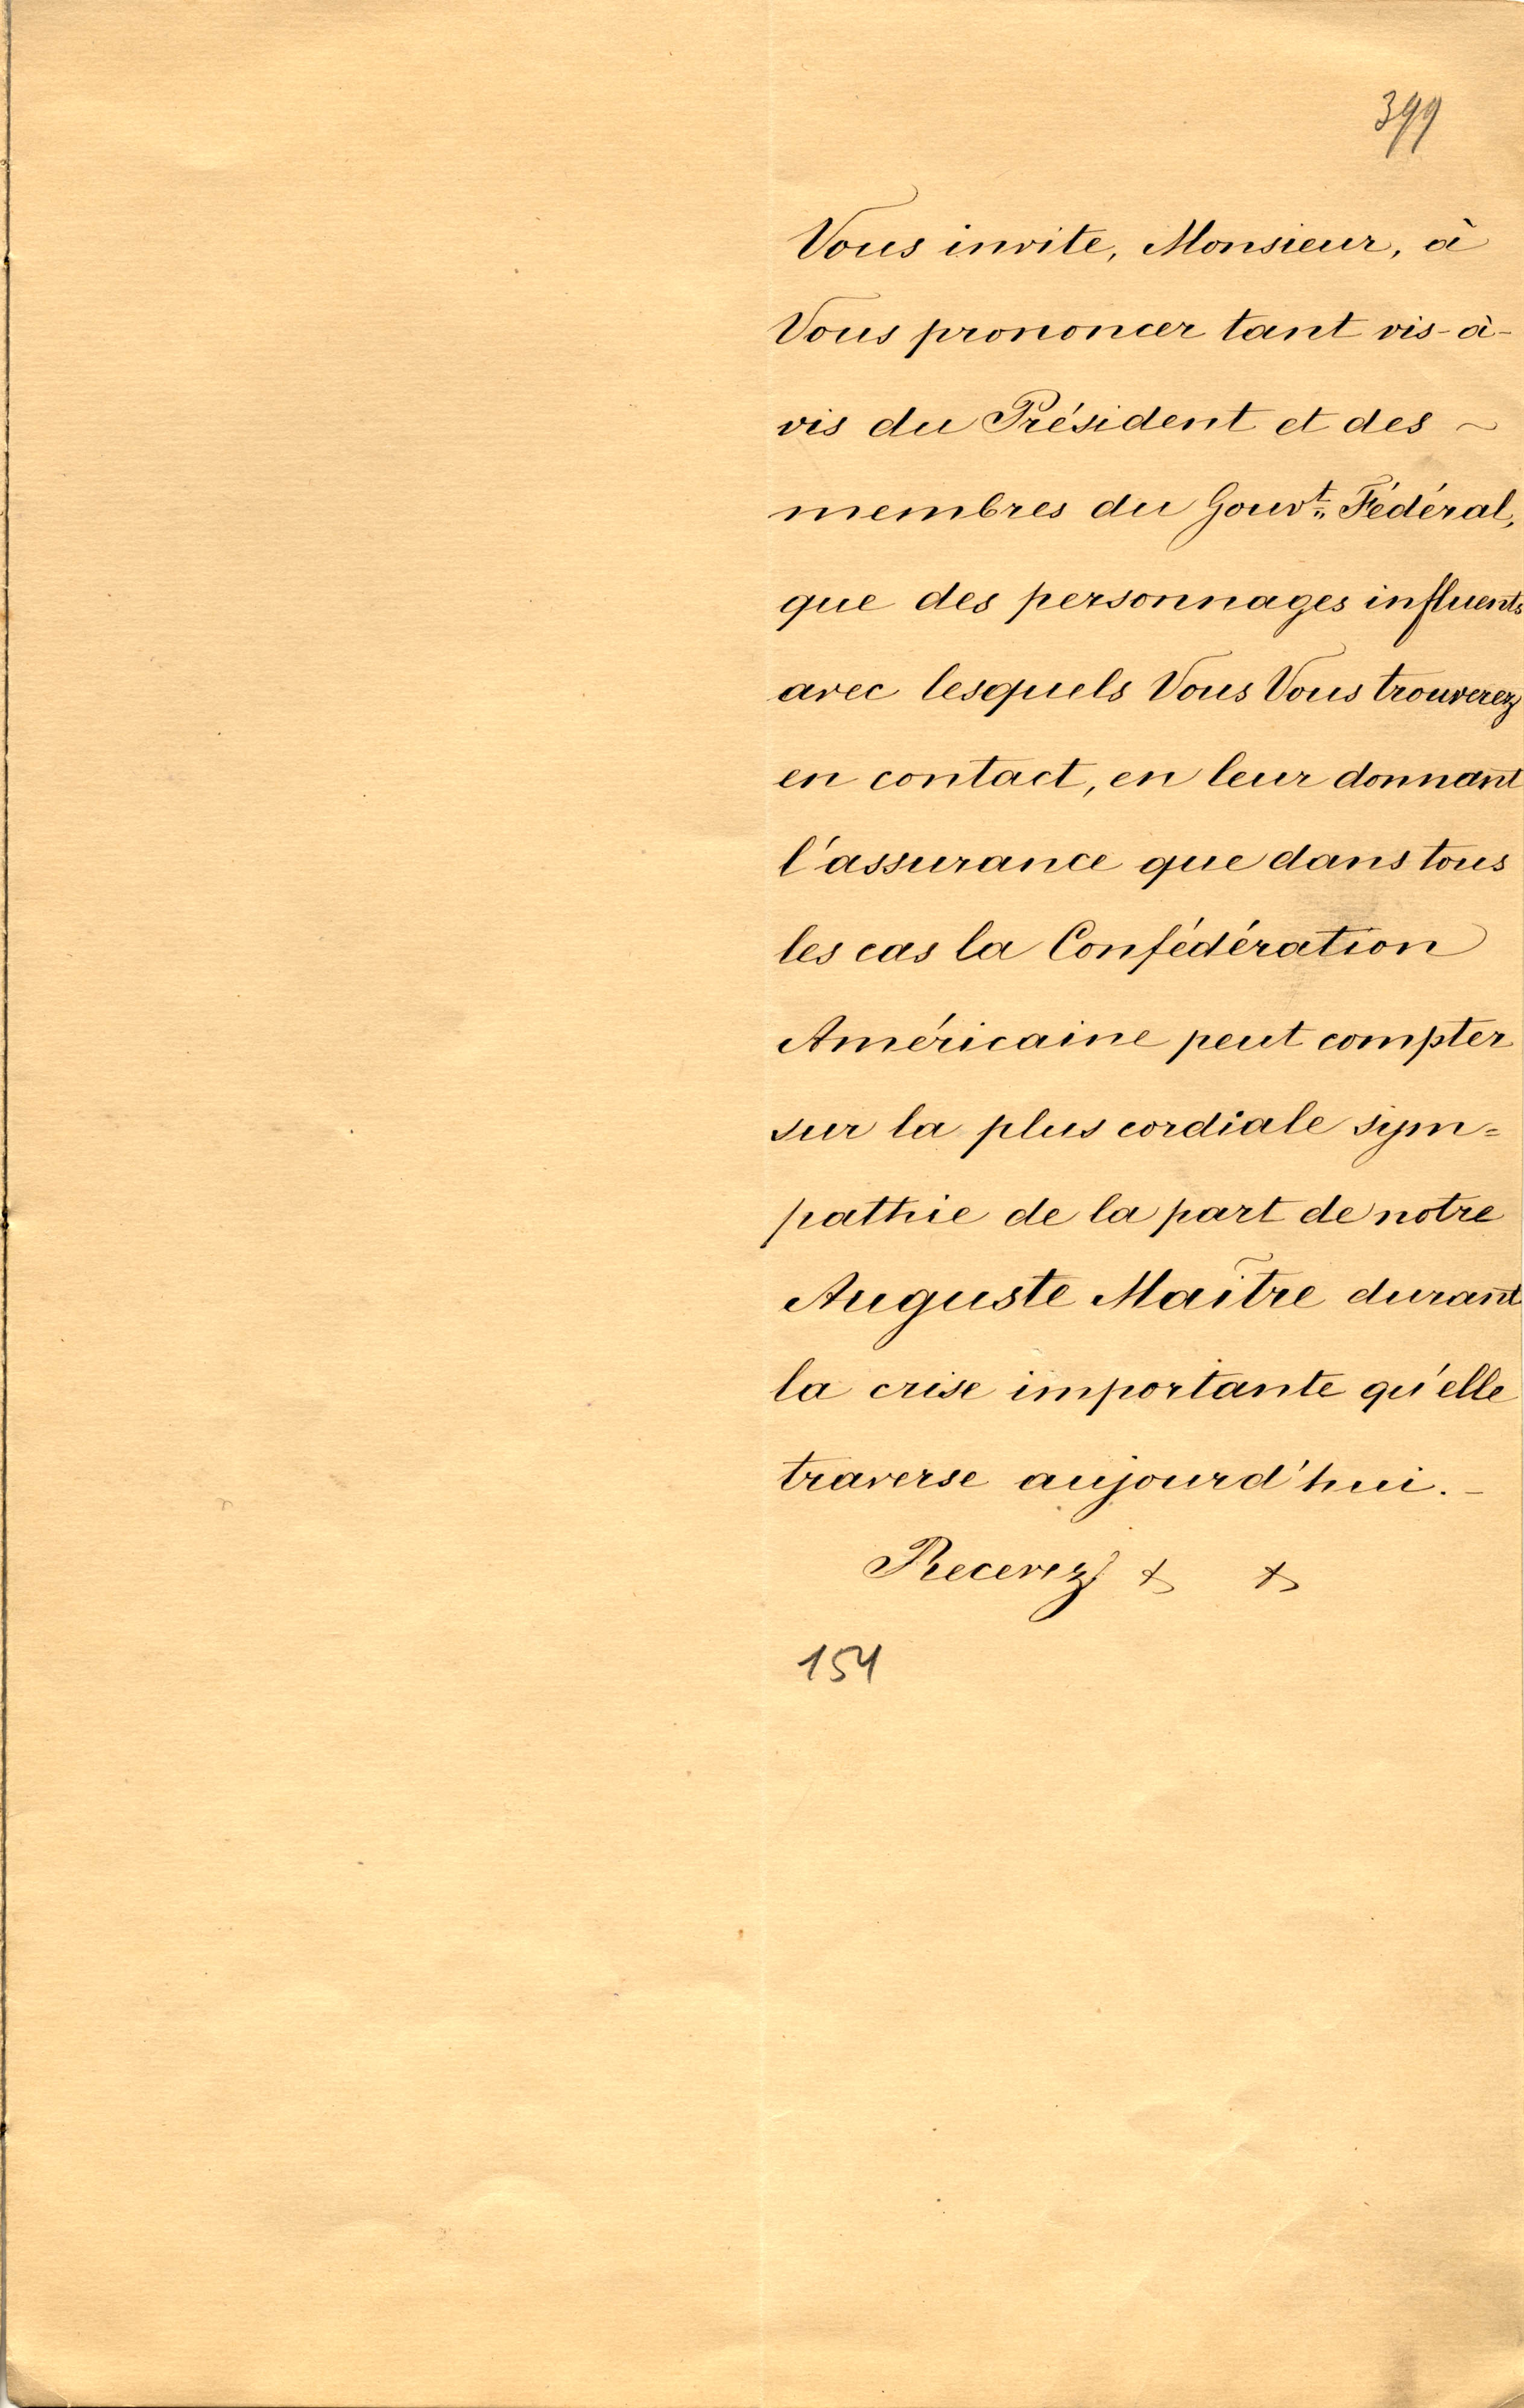 399
Vous invite, Monsieur, à
Vous prononcer tant vis-à-
vis du Président et des ~
membres du Gouvt. Fédéral,
que des personnages influents
avec lesquels Vous Vous trouverez
en contact, en leur donnant
l'assurance que dans tous
les cas la Confédération
Américaine peut compter
sur la plus cordiale sym=
pathie de la part de notre
Auguste Maître durant
la crise importante qu'elle
traverse aujourd'hui. -
Recevez & &
154